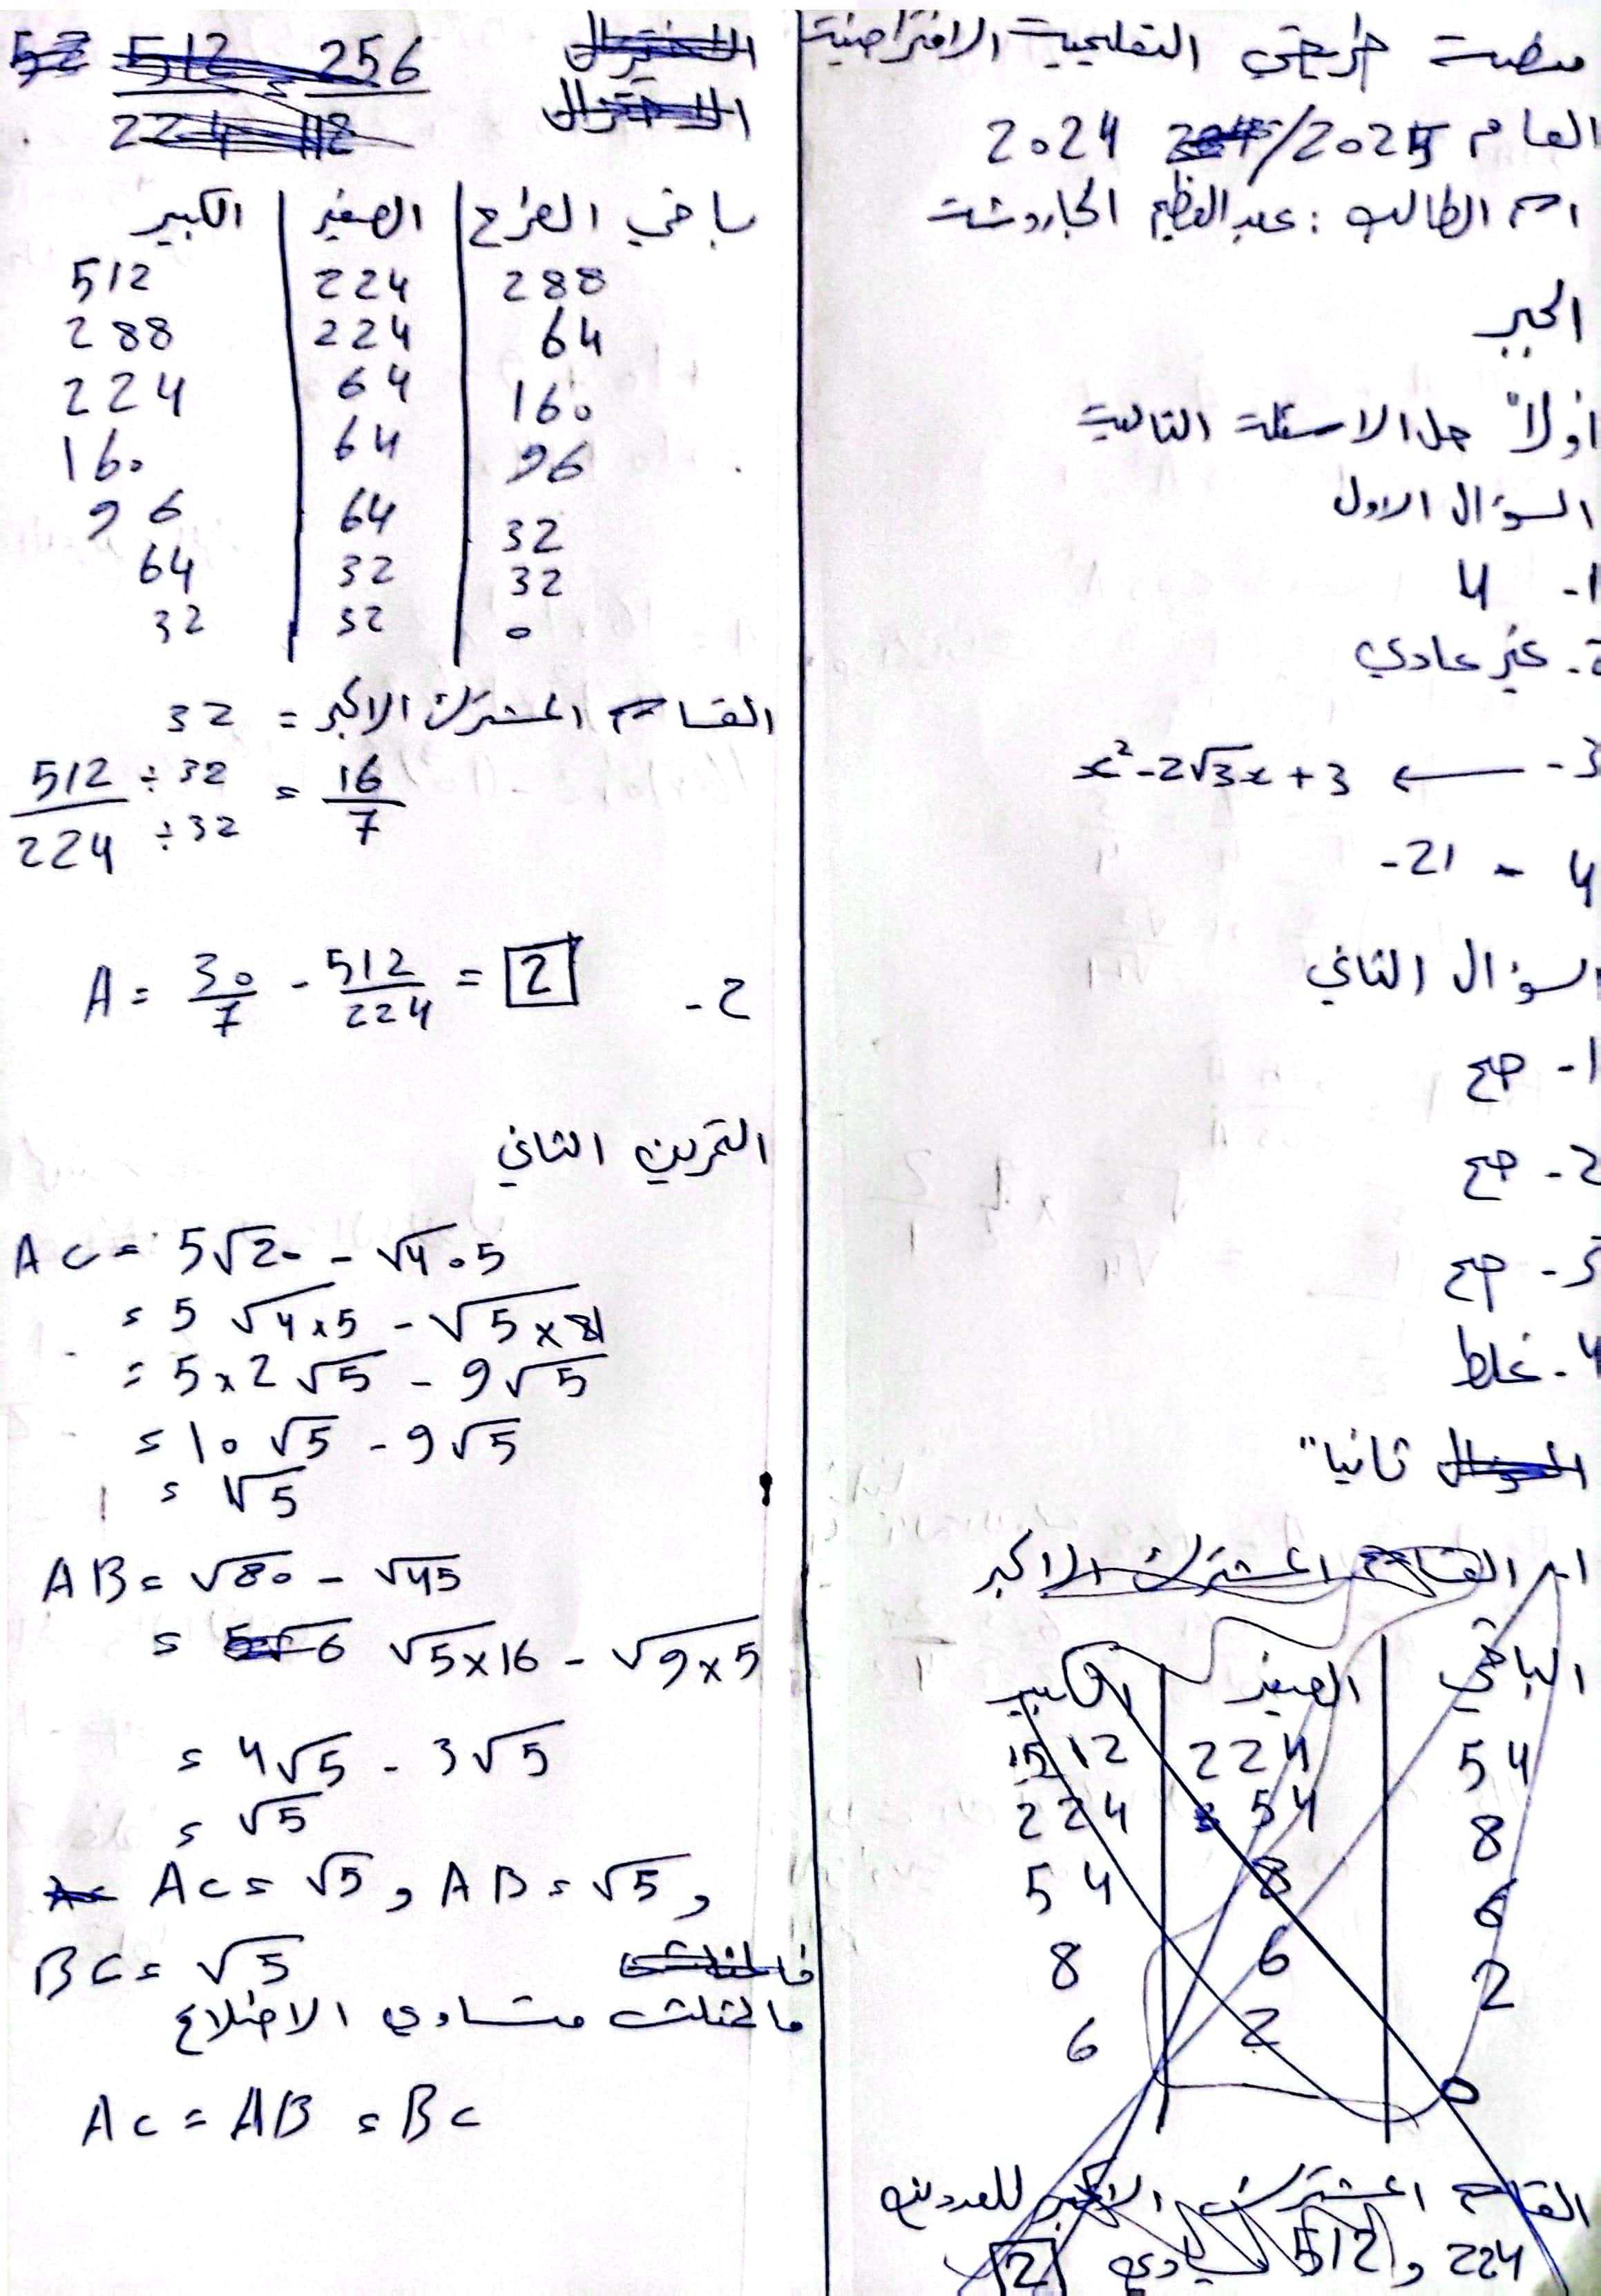 منصة خريجي التعليمية الافتراضية
العام 2024/2025
اسم الطالب : عبد العظيم الجاروشة
الجبر
اولاً حل الاسئلة التالية
السؤال الاول
1- 4
2- غير عادي
3- ← x²-2√3x+3
4- -21
السؤال الثاني
1- صح
2- صح
3- صح
4- غلط
ثانياً
1- القاسم المشترك الاكبر
الكبير | الصغير | الباقي
512 | 224 | 54
224 | 54 | 8
54 | 8 | 6
8 | 6 | 2
6 | 2 | 0
القاسم المشترك الاكبر للعددين
224 و 512 يساوي 2
512/224 = 256/112
الاختزال
الاختزال
الكبير | الصغير | باقي الطرح
512 | 224 | 288
288 | 224 | 64
224 | 64 | 160
160 | 64 | 96
96 | 64 | 32
64 | 32 | 32
32 | 32 | 0
القاسم المشترك الاكبر = 32
512/224 ÷32/÷32 = 16/7
2- A = 30/7 - 512/224 = 2
التمرين الثاني
AC = 5√20 - √405
= 5 √4×5 - √5×81
= 5×2√5 - 9√5
= 10√5 - 9√5
= √5
AB = √80 - √45
= √5×16 - √9×5
= 4√5 - 3√5
= √5
AC = √5 , AB = √5 ,
BC = √5
فالمثلث متساوي الاضلاع
AC = AB = BC